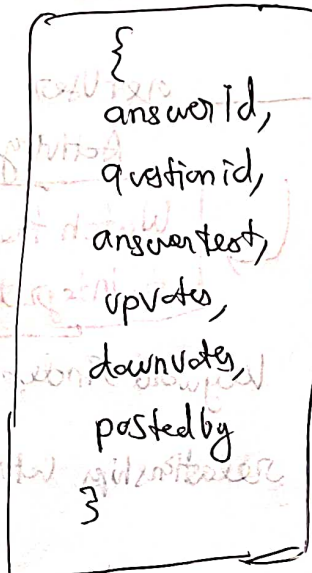 {
answerId,
questionid,
answertext,
upvotes,
downvotes,
postedby
}